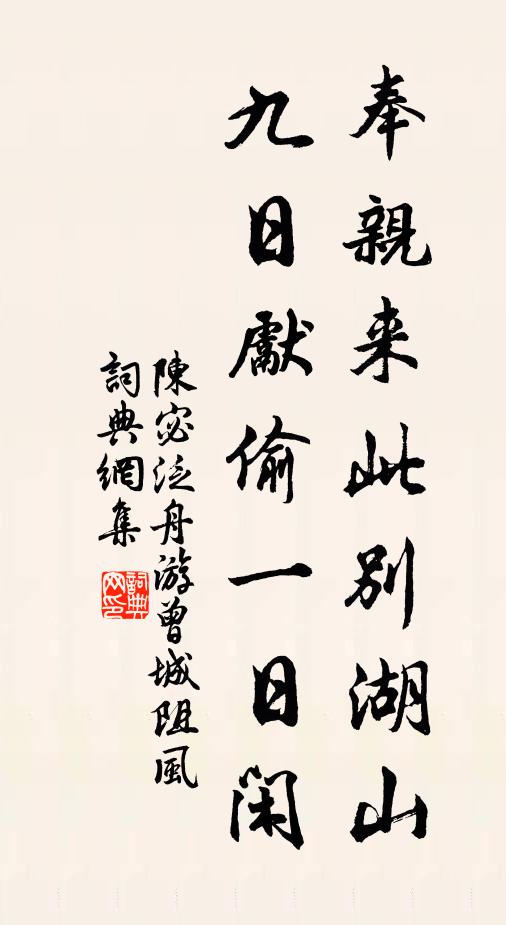 奉親来此別湖山
九日獻偷一日闲
陳宓泛舟游曾城阻風
詞典網集
詞典網印